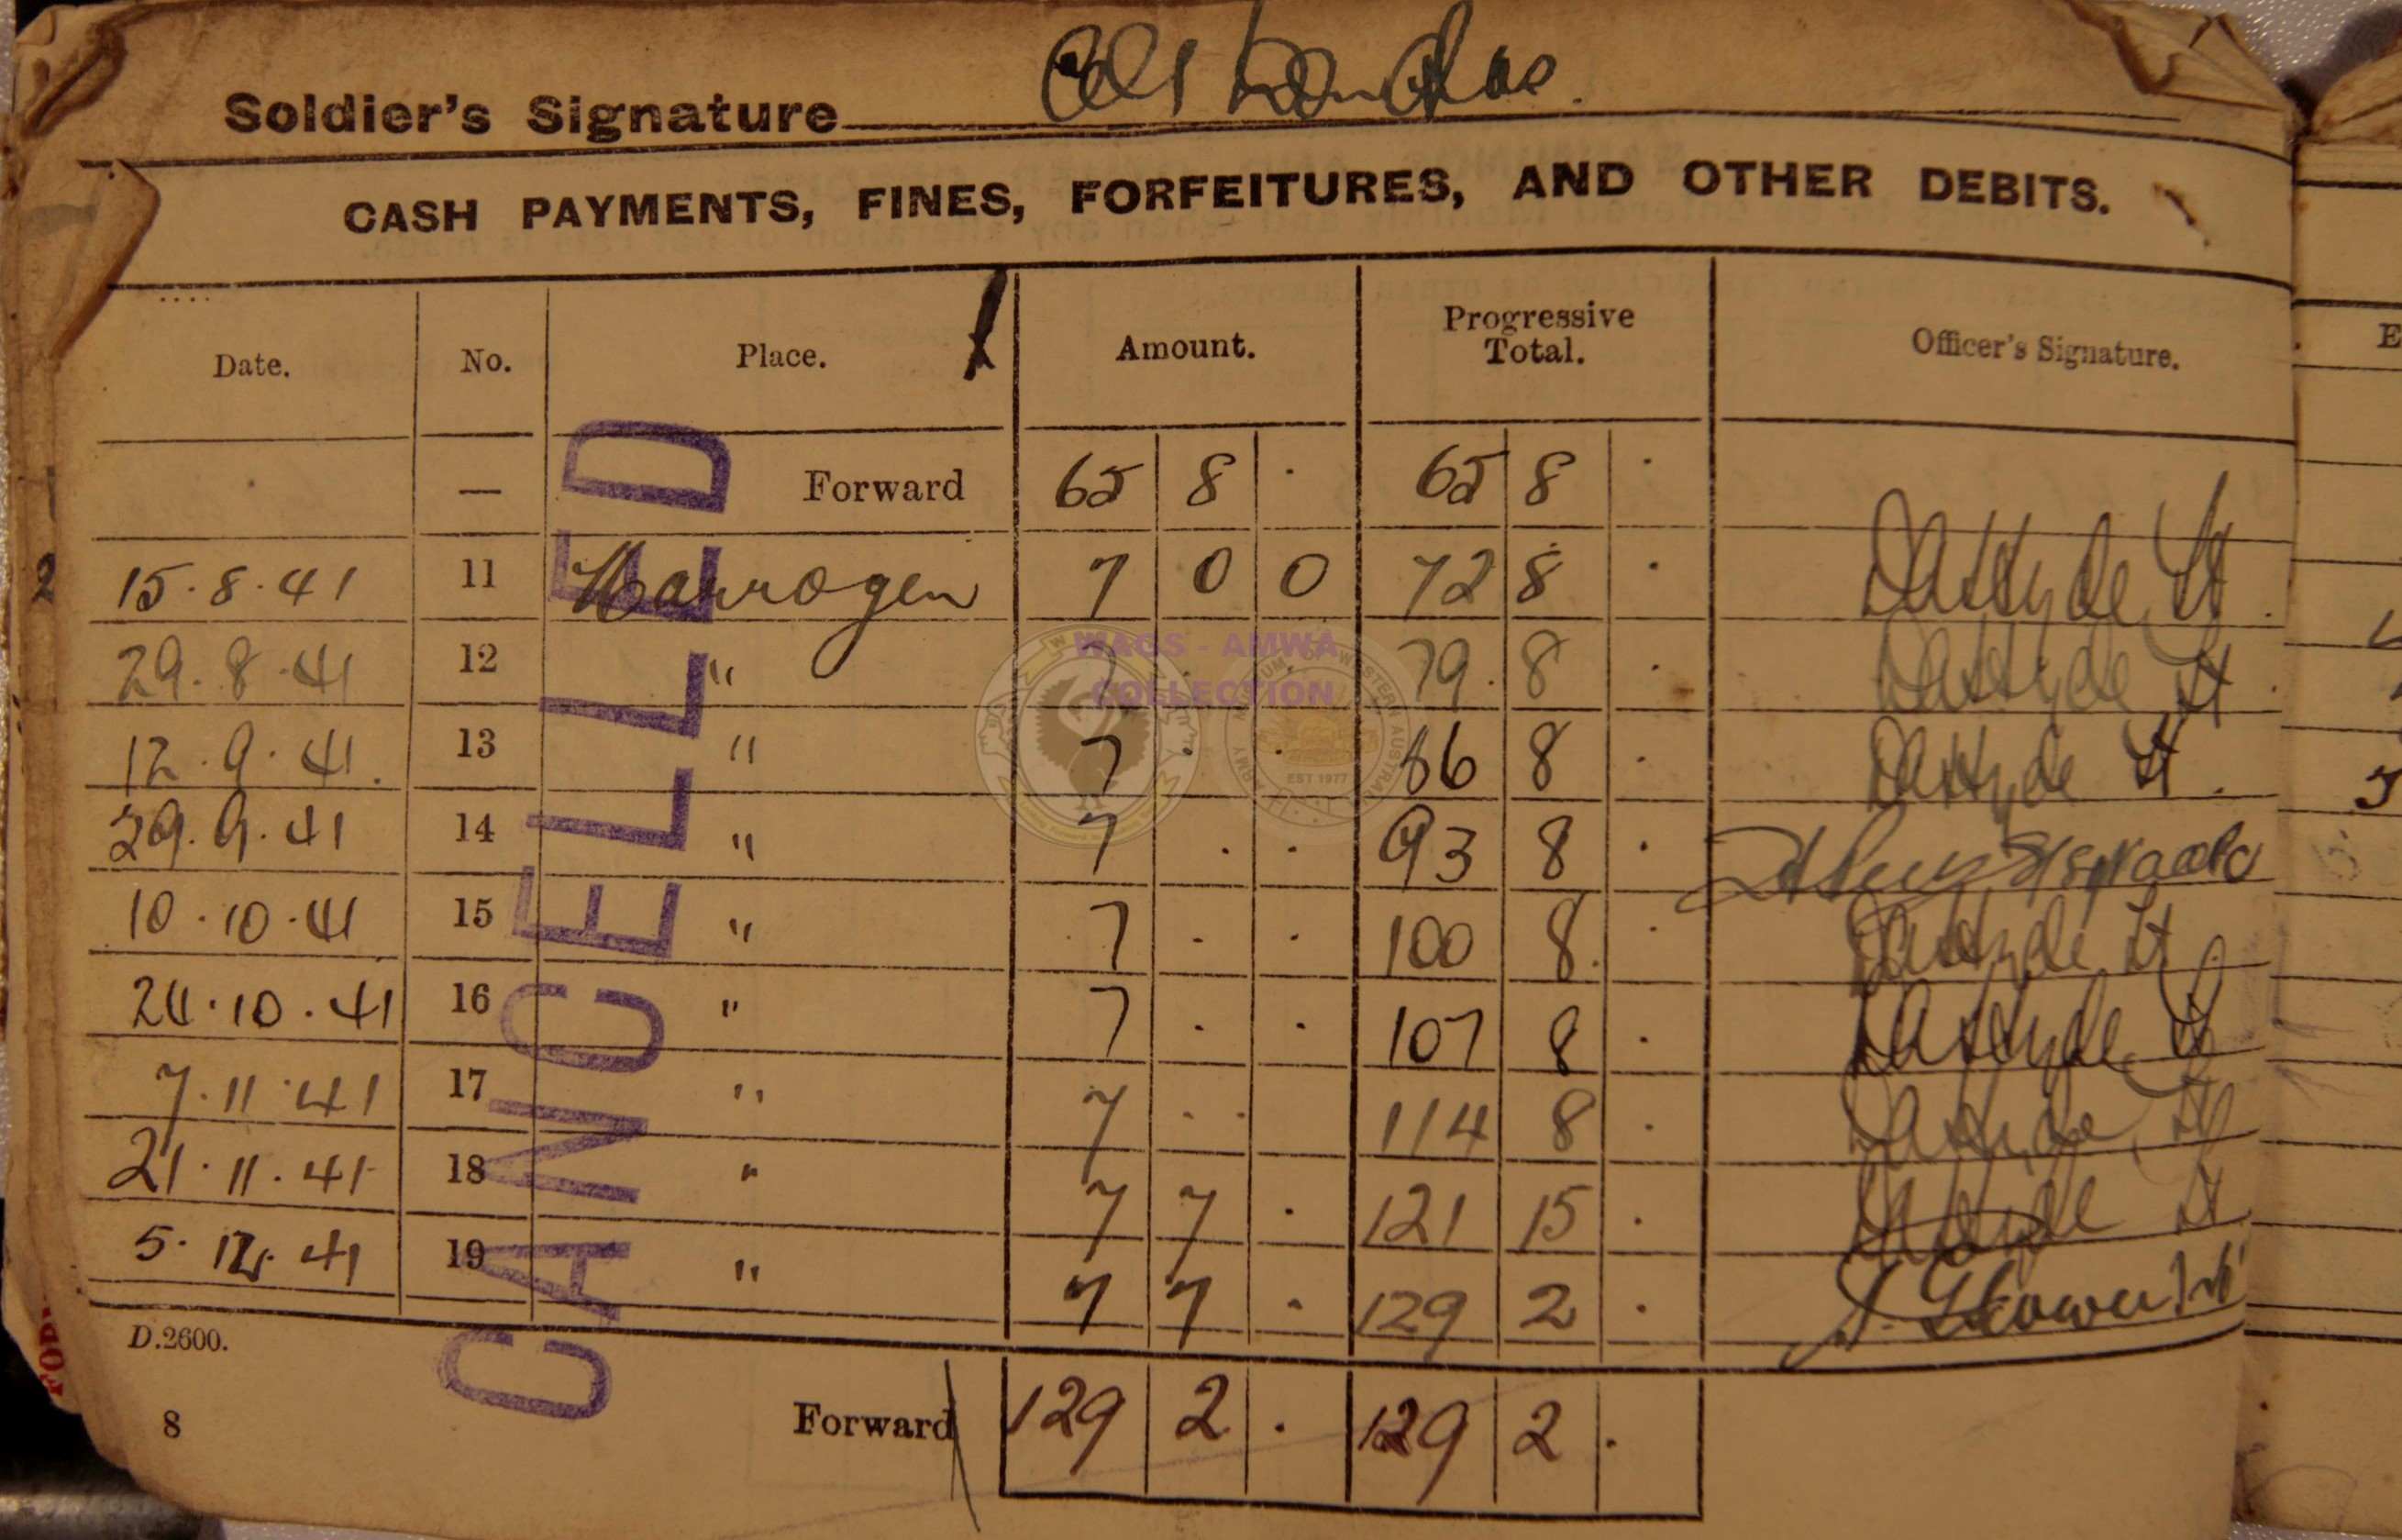 Soldier's Signature
CASH PAYMENTS, FINES, FORFEITURES, AND OTHER DEBITS.
Date. No. Place. Amount. Progressive Total. Officer's Signature.
— Forward 65 8 . 65 8 .
15.8.41 11 Narrogen 7 0 0 72 8 .
29.8.41 12 " 7 . . 79. 8 .
12.9.41. 13 " 7 . . 86 8 .
29.9.41 14 " 7 . . 93 8 .
10.10.41 15 " 7 . . 100 8 .
24.10.41 16 " 7 . . 107 8 .
7.11.41 17 " 7 . . 114 8 .
21.11.41 18 " 7 7 . 121 15 .
5.12.41 19 " 7 7 . 129 2 .
D.2600.
8 Forward 129 2 . 129 2 .
CANCELLED
WAGS - AMWA
COLLECTION
EST 1977
2